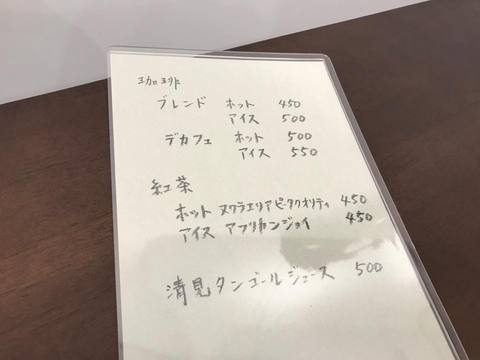 珈琲
ブレンド ホット 450
アイス 500
デカフェ ホット 500
アイス 550
紅茶
ホット ヌワラエリアピータクオリティ 450
アイス アフリカンジョイ 450
清見タンゴールジュース 500